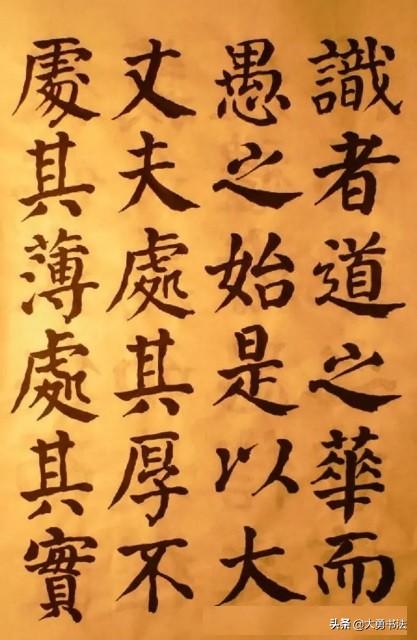 識者道之華而
愚之始是以大
丈夫處其厚不
處其薄處其實
头条 @大勇书法